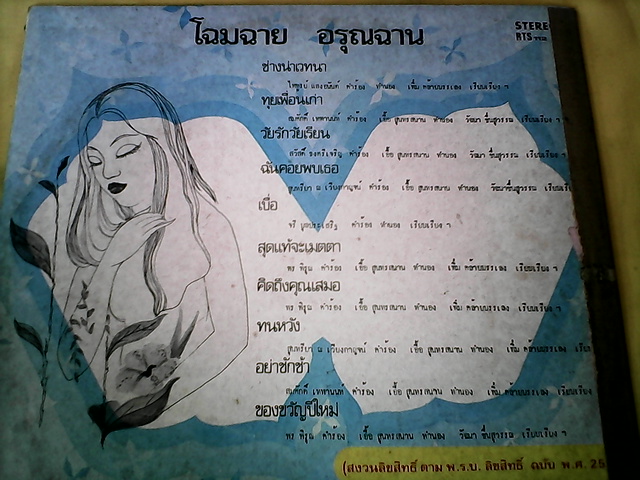 โฉมฉาย อรุณฉาน
STERE
RTS
ช่างน่าเวทนา
คำร้อง ทำนอง เพิ่ม คล้ายบรรเลง เรียบเรียง ฯ
ทุยเพื่อนเก่า
สมศักดิ์ เทพานนท์ คำร้อง เอื้อ สุนทรสนาน ทำนอง วัฒนา ชื่นสุวรรณ เรียบเรียง ฯ
วัยรักวัยเรียน
คำร้อง เอื้อ สุนทรสนาน ทำนอง วัฒนา ชื่นสุวรรณ เรียบเรียง
ฉันคอยพบเธอ
สุนทรียา ณ เวียงกาญจน์ คำร้อง เอื้อ สุนทรสนาน ทำนอง วัฒนา ชื่นสุวรรณ เรียบเรีย
เบื่อ
คำร้อง ทำนอง เรียบเรียง ฯ
สุดแท้จะเมตตา
พร พิรุณ คำร้อง เอื้อ สุนทรสนาน ทำนอง เพิ่ม คล้ายบรรเลง เรียบเรียง ฯ
คิดถึงคุณเสมอ
พร พิรุณ คำร้อง เอื้อ สุนทรสนาน ทำนอง เพิ่ม คล้ายบรรเลง เรียบเรียง ฯ
ทนหวัง
สุนทรียา ณ เวียงกาญจน์ คำร้อง เอื้อ สุนทรสนาน ทำนอง เพิ่ม คล้ายบรรเลง เรียบเรีย
อย่าชักช้า
สมศักดิ์ เทพานนท์ คำร้อง เอื้อ สุนทรสนาน ทำนอง เพิ่ม คล้ายบรรเลง เรียบเรียง
ของขวัญปีใหม่
พร พิรุณ คำร้อง เอื้อ สุนทรสนาน ทำนอง วัฒนา ชื่นสุวรรณ เรียบเรียง ฯ
(สงวนลิขสิทธิ์ ตาม พ.ร.บ. ลิขสิทธิ์ ฉบับ พ.ศ. 25